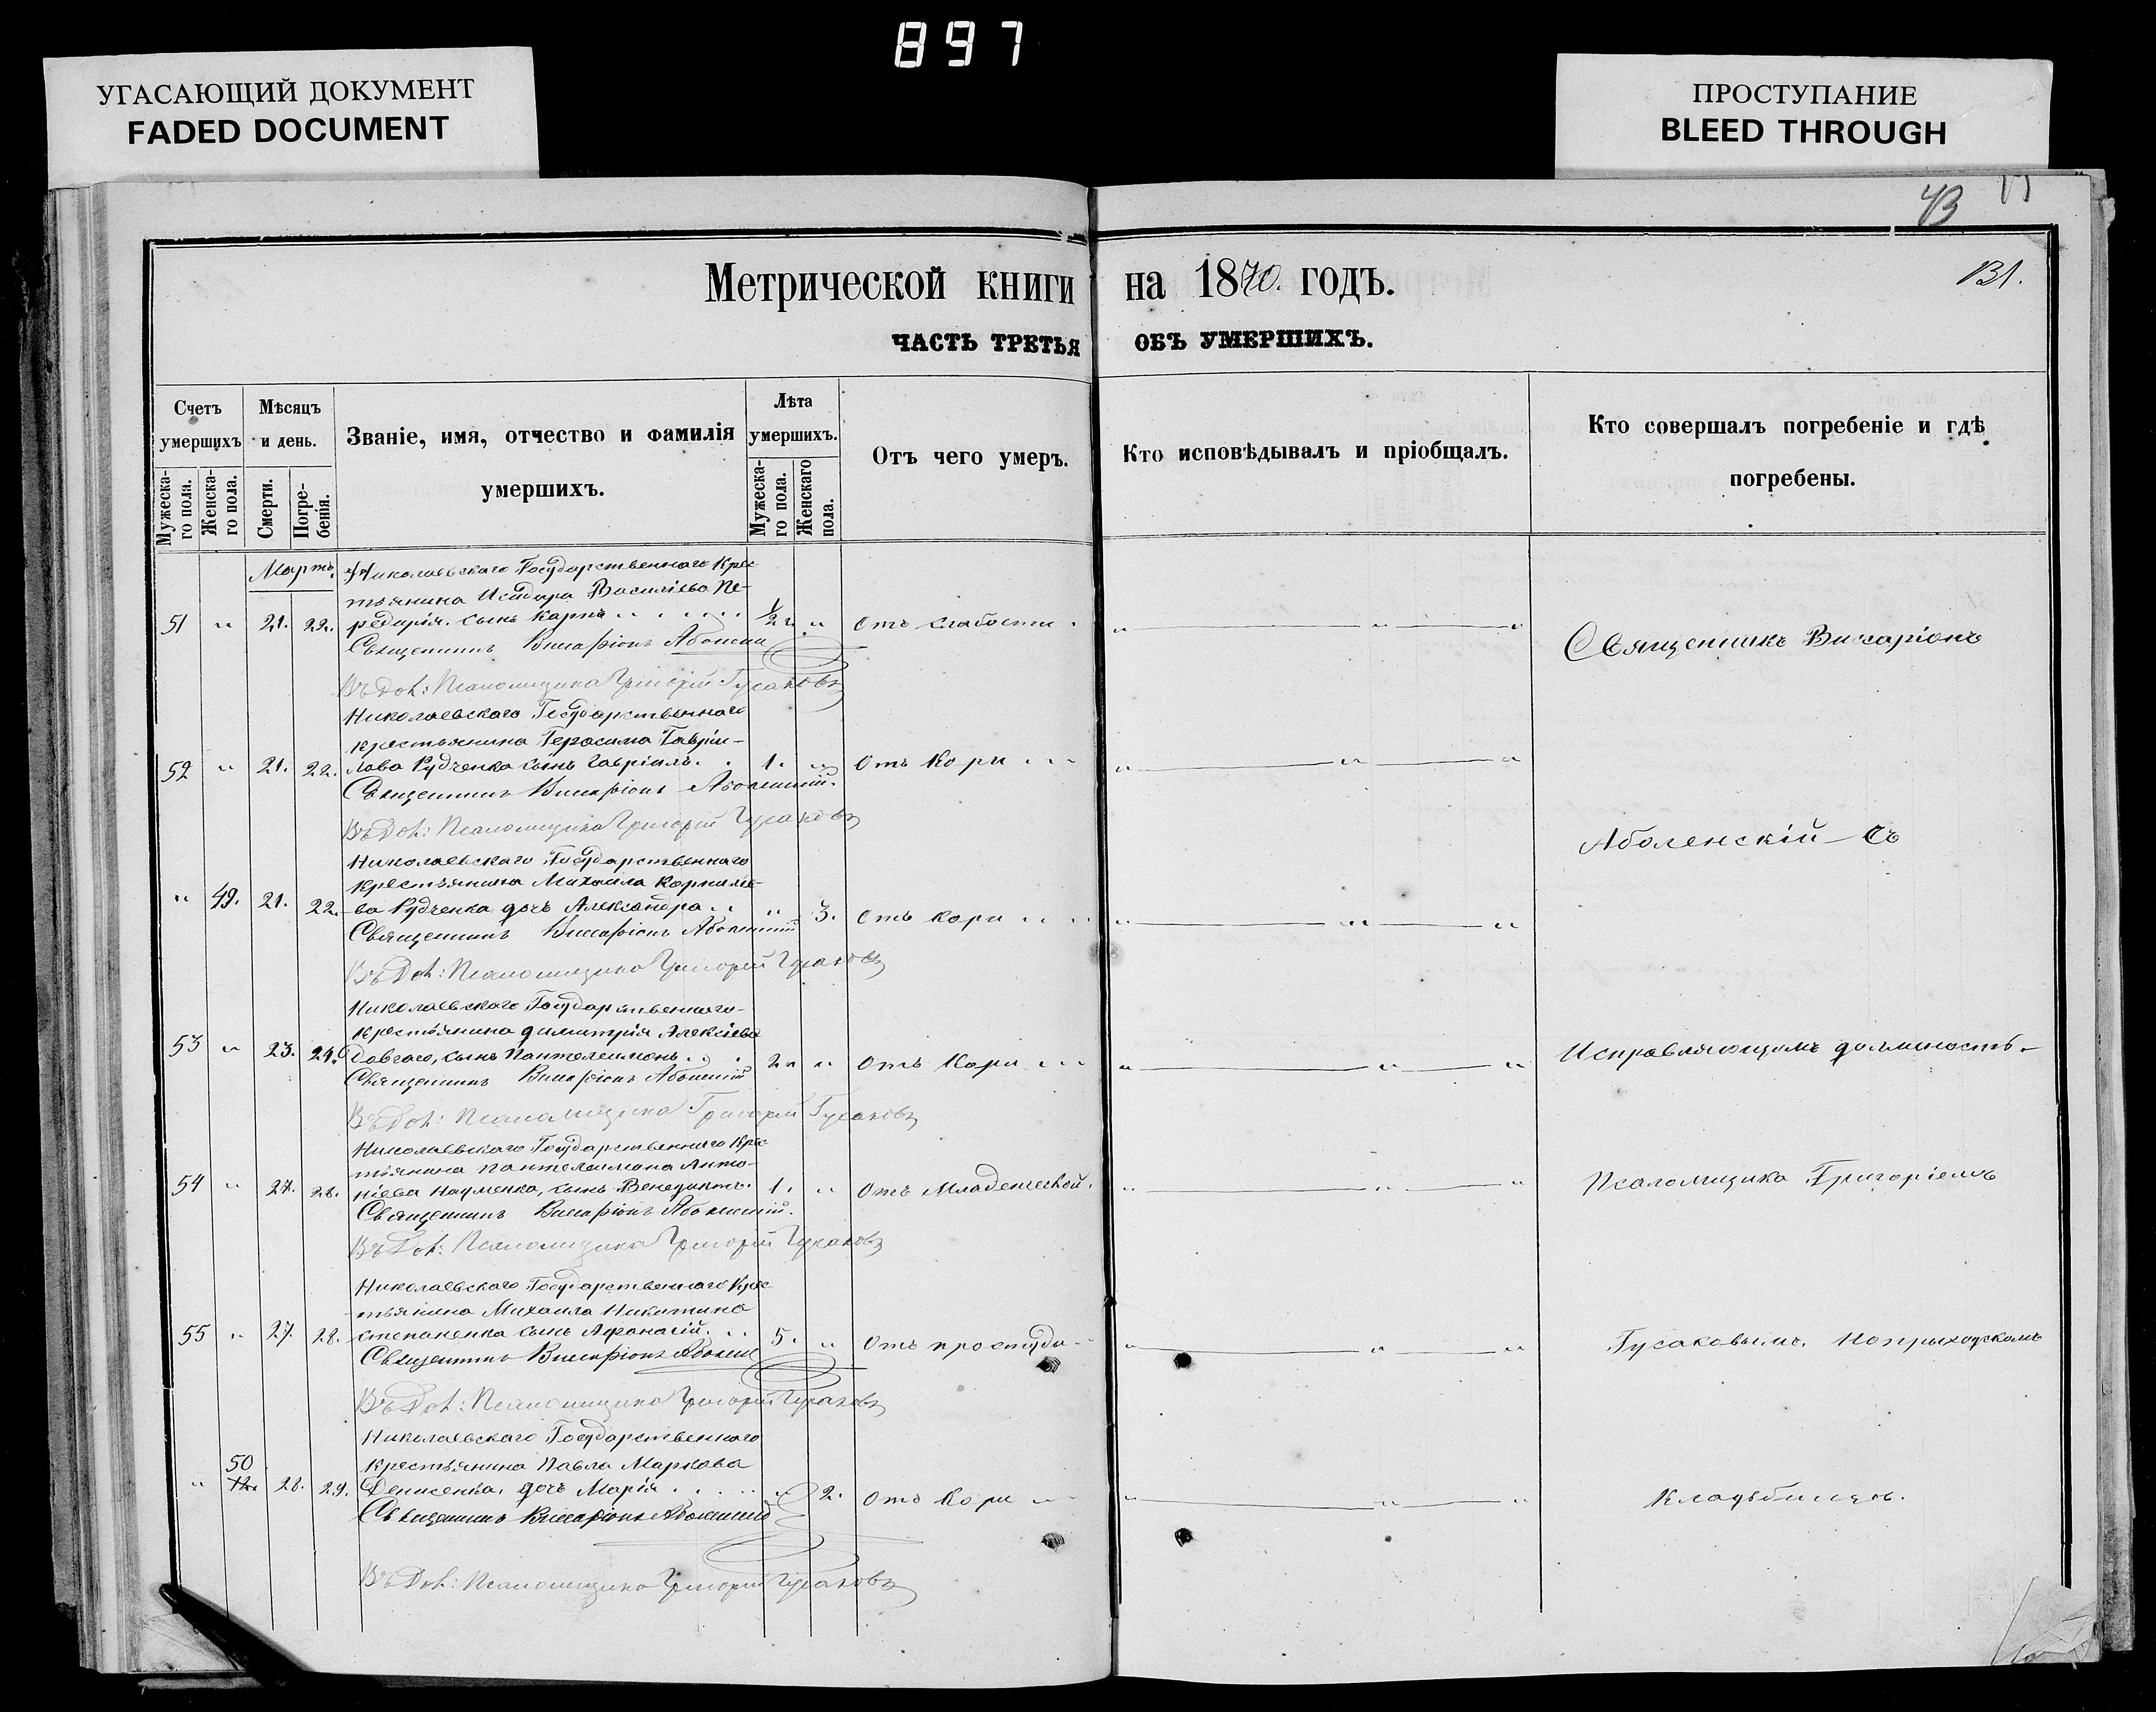 897
УГАСАЮЩИЙ ДОКУМЕНТ
FADED DOCUMENT
ПРОСТУПАНИЕ
BLEED THROUGH
43
Метрической книги на 1870. годъ.
131.
ЧАСТЬ ТРЕТЬЯ ОБЪ УМЕРШИХЪ.
Счетъ умершихъ
Мужеска-го пола.
Женска-го пола.
Мѣсяцъ и день.
Смерти.
Погре-бенія.
Званіе, имя, отчество и фамилія умершихъ.
Лѣта умершихъ.
Мужеска-го пола.
Женскаго пола.
Отъ чего умеръ.
Кто исповѣдывалъ и пріобщалъ.
Кто совершалъ погребеніе и гдѣ погребены.
Мартъ.
Николаевскаго Государственнаго Крес
тьянина Исидора Василіева Пе-
51 " 21. 22. редирія. сынъ Карпъ 1/2 " Отъ слабости
Священникъ Виссаріонъ Аболенскій
Въ Дол: Псаломщика Григорій Гусаковъ
Николаевскаго Государственнаго
крестьянина Герасима Гаврiи-
52 " 21. 22. лова Рудченка сынъ Гавріилъ. 1. " Отъ Кори
Священникъ Виссаріонъ Аболенскій.
Въ Дол: Псаломщика Григорій Гусаковъ
Николаевскаго Государственнаго
крестьянина Михаила Корнилiе-
" 49. 21. 22. ва Рудченка дочь Александра " 3. Отъ кори
Священникъ Виссаріонъ Аболенскій
Въ Дол: Псаломщика Григорій Гусаковъ
Николаевскаго Государственнаго
крестьянина Димитрія Алексіева
53 " 23. 24. Довгаго, сынъ Пантелеимонъ 2 " Отъ Кори
Священникъ Виссаріонъ Аболенскій
Въ Дол: Псаломщика Григорій Гусаковъ
Николаевскаго Государственнаго Крес
тьянина Пантелеимона Анто-
54 " 27. 28. ніева Науменка, сынъ Венедиктъ. 1. " Отъ Младенческой.
Священникъ Виссаріонъ Аболенскій.
Въ Дол: Псаломщика Григорій Гусаковъ
Николаевскаго Государственнаго Крес
тьянина Михаила Никитина
55 " 27. 28. Степаненка сынъ Афанасій. 5. " Отъ простуди
Священникъ Виссаріонъ Аболенскій
Въ Дол: Псаломщика Григорій Гусаковъ
Николаевскаго Государственнаго
50 крестьянина Павла Маркова
" 28. 29. Денисенка, дочь Марія " 2. Отъ Кори
Священникъ Виссаріонъ Аболенскій
Въ Дол: Псаломщика Григорій Гусаковъ
Священникъ Виссаріонъ
Аболенскій съ
Исправляющимъ должность
Псаломщика Григоріемъ
Гусаковымъ. На прыходскомъ
кладьбищѣ.